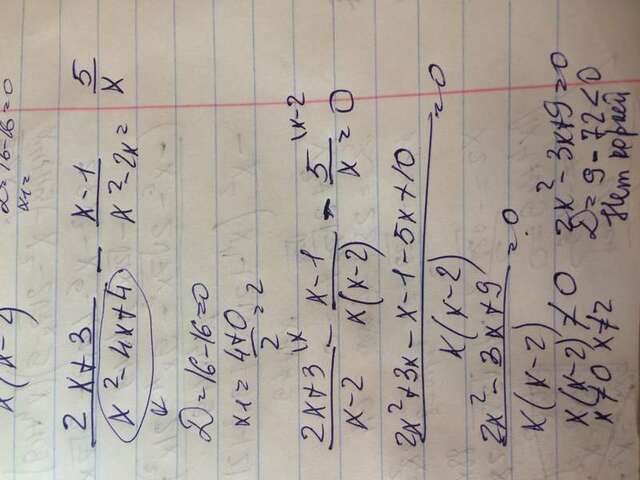 x(x-2)
D=16-16=0
x₁=
(2x+3)/(x²-4x+4) - (x-1)/(x²-2x) = 5/x
D=16-16=0
x₁=(4+0)/2=2
(2x+3)/(x-2) \x - (x-1)/(x(x-2)) - 5/x \x-2 = 0
(2x²+3x-x-1-5x+10)/(x(x-2)) =0
(2x²-3x+9)/(x(x-2)) =0
x(x-2)≠0 2x²-3x+9=0
x≠0 x≠2 D=9-72<0
Нет корней